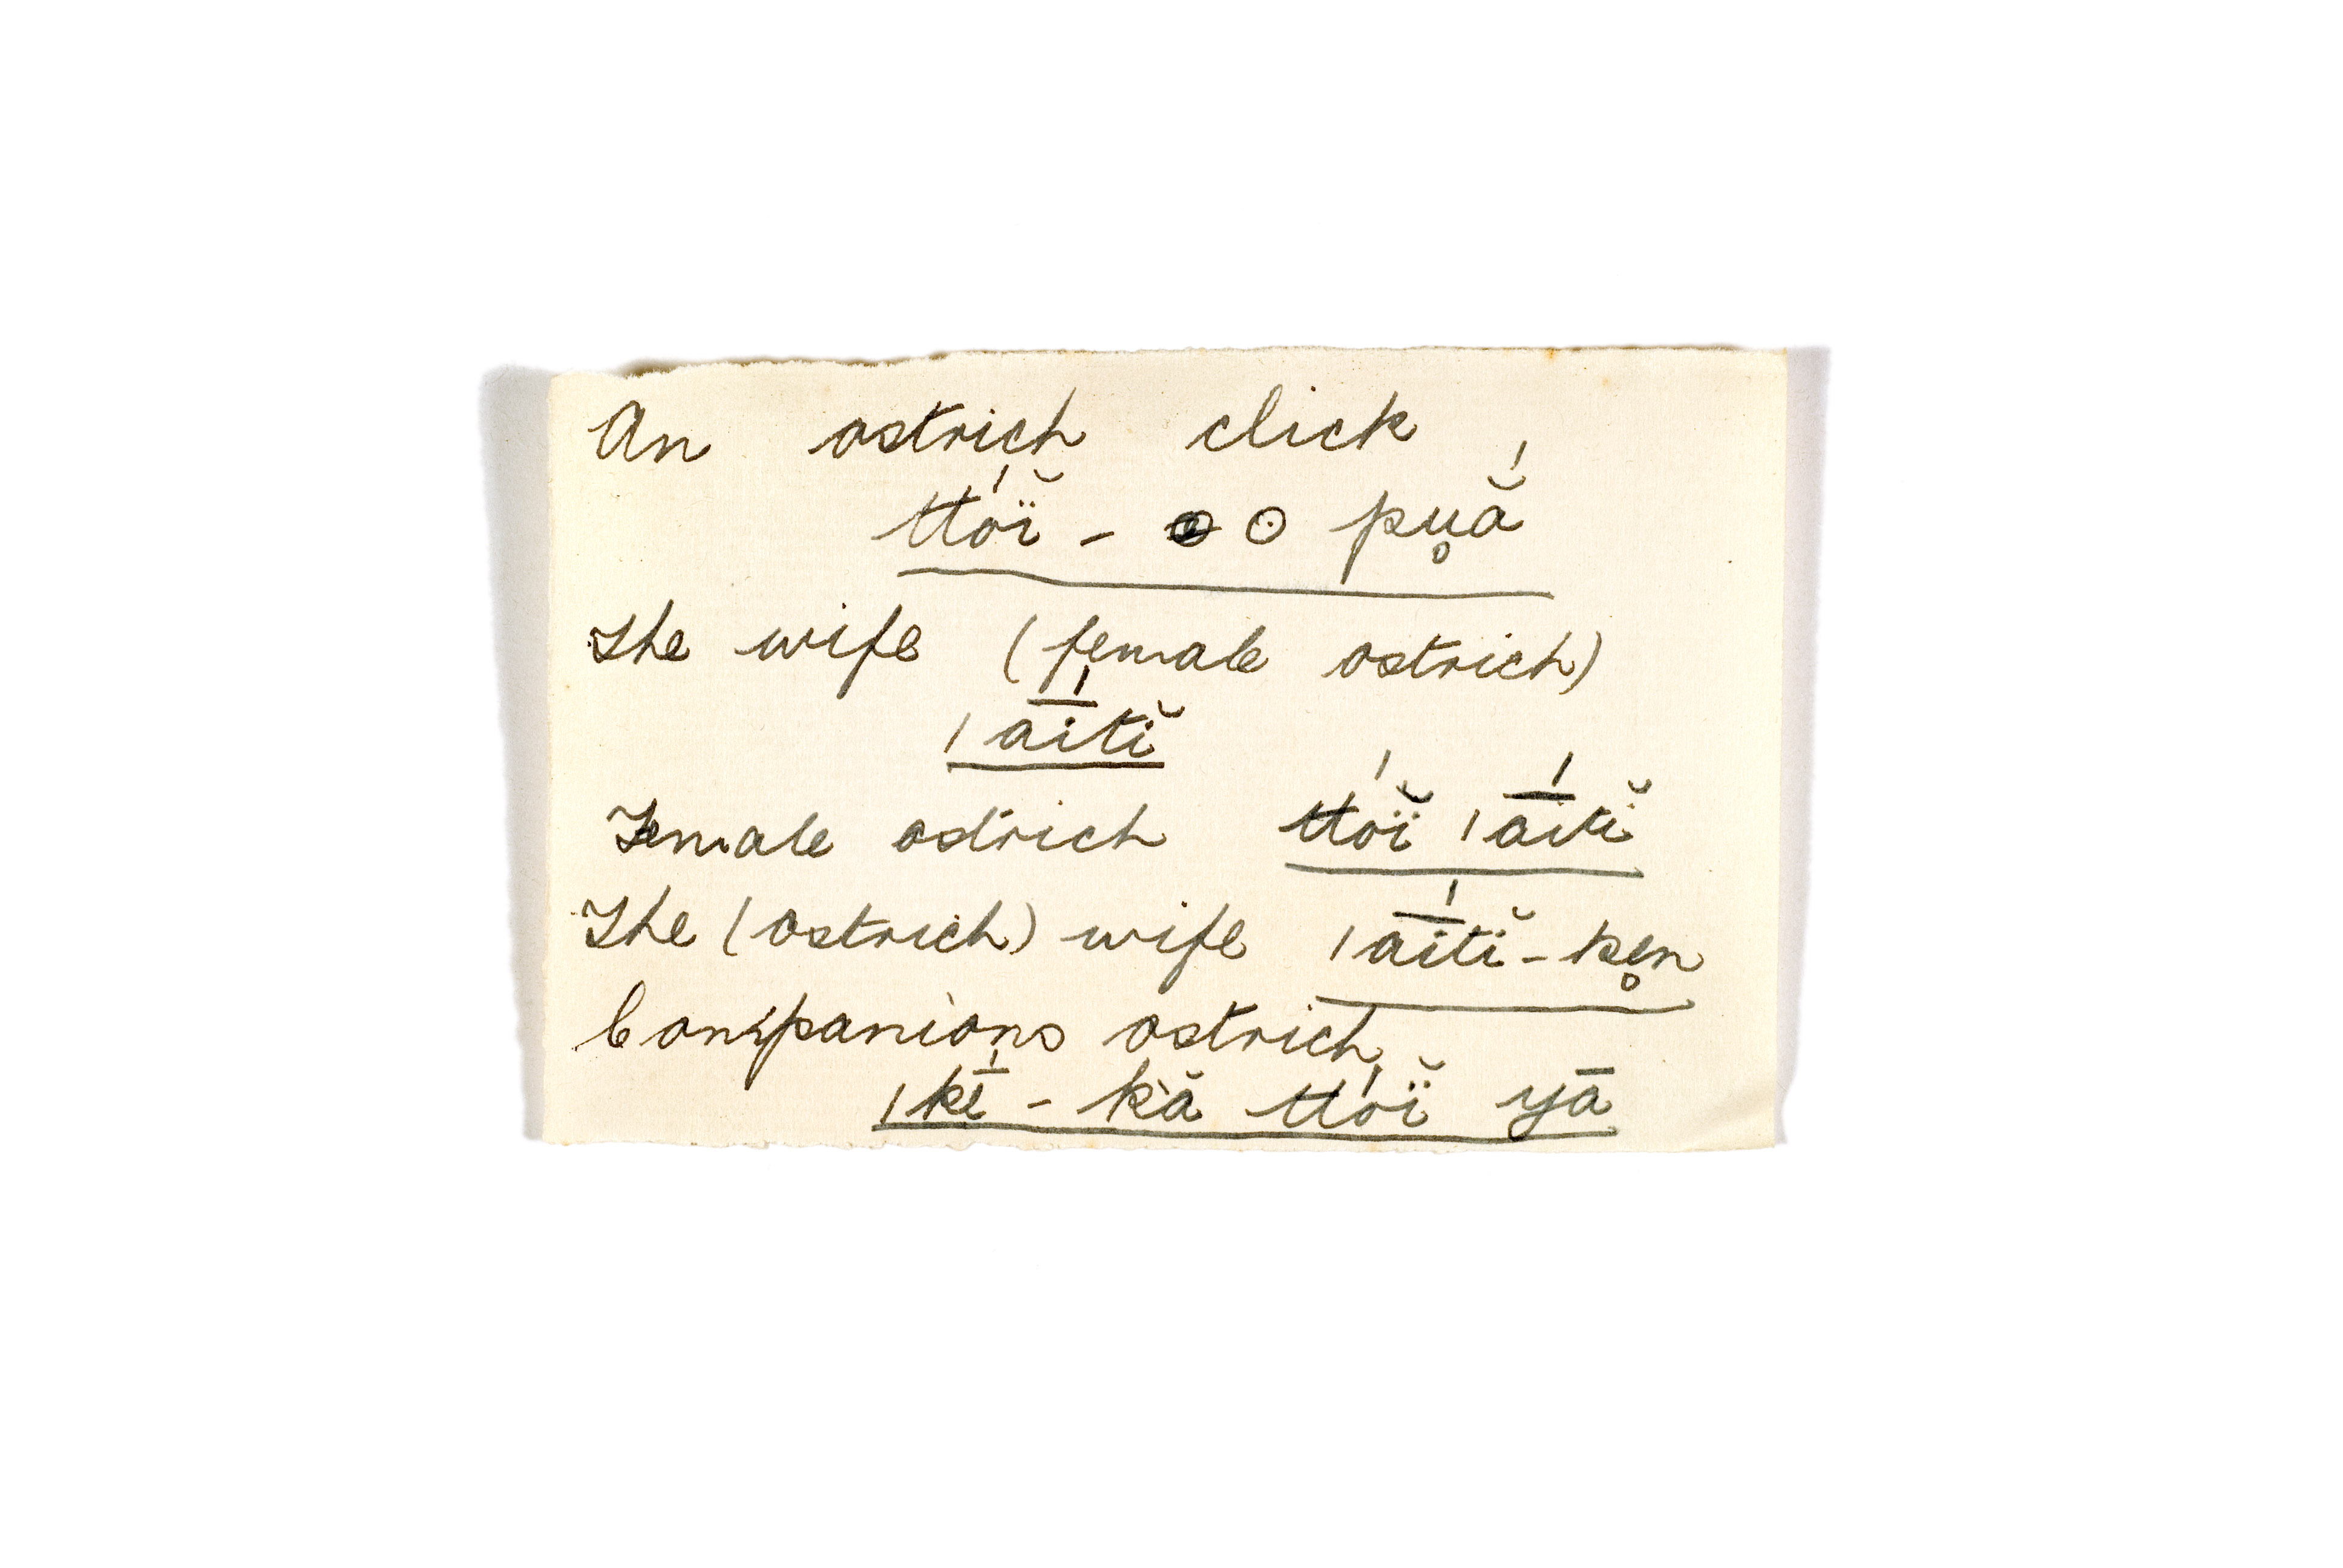 An ostrich click
ttó́ï̆ - ʘ pu̥ā̆́
The wife (female ostrich)
ǀ ā́ītĭ
Female ostrich ttóï̆ ǀ ā́ītĭ
The (ostrich) wife ǀ ā́ītĭ - ke̥n
Companions ostrich
ǀ kḗ - kă ttóï̆ yā